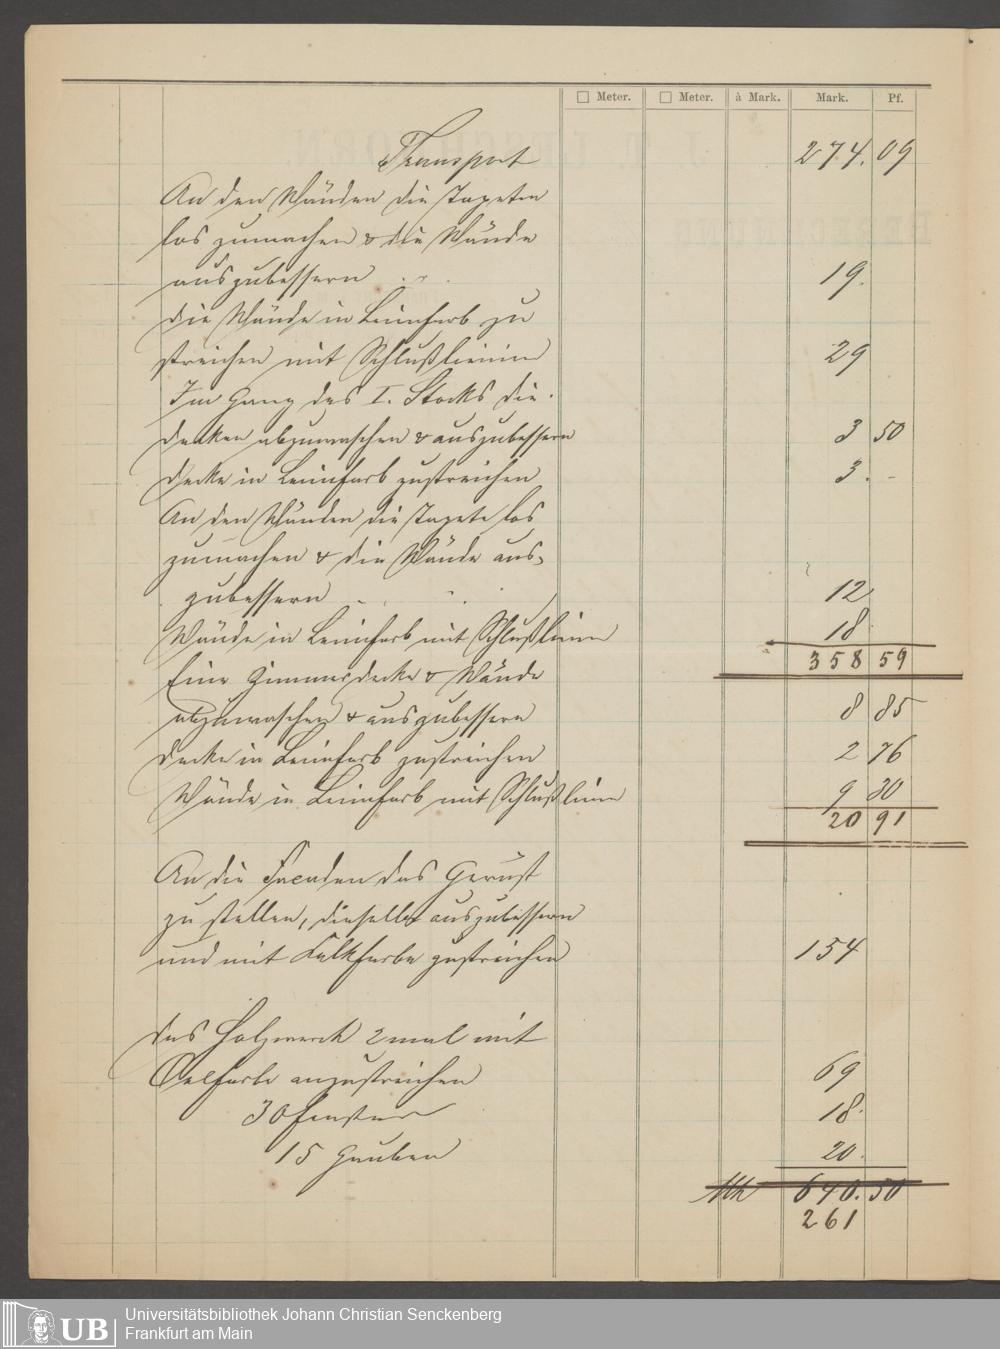 □ Meter. □ Meter. à Mark. Mark. Pf.
Transport 274. 09
An den Wänden die Tapeten
los zumachen & die Wände
auszubessern 19.
die Wände in Leimfarb zu
streichen mit Schlußlinien 29
Im Gang des I. Stocks die
decken abzuwaschen & auszubessern 3 50
Decke in Leimfarb zustreichen 3. -
An den Wänden die Tapete los
zumachen & die Wände aus-
zubessern 12
Wände in Leimfarb mit Schlußlinien 18
358 59
Eine Zimmerdecke & Wände
abzuwaschen & auszubessern 8 85
decke in Leimfarb zustreichen 2 76
Wände in Leimfarb mit Schlußlinien 9 30
20 91
An die Facaden das Gerüst
zu stellen, dieselbe auszubessern
und mit Kalkfarbe zustreichen 154
das Holzwerk 2 mal mit
Oelfarbe anzustreichen 69
30 Fenster 18.
15 Gauben 20.
Mk 640. 50
261
UB
Universitätsbibliothek Johann Christian Senckenberg
Frankfurt am Main